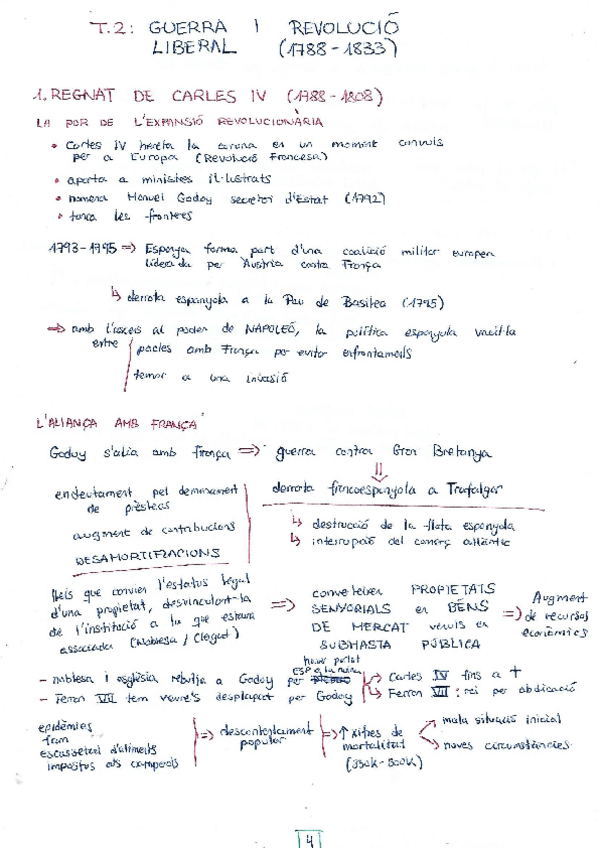 T.2: GUERRA I REVOLUCIÓ
LIBERAL (1788-1833)
1. REGNAT DE CARLES IV (1788-1808)
LA POR DE L'EXPANSIÓ REVOLUCIONÀRIA
• Carles IV hereta la corona en un moment convuls
per a Europa (Revolució Francesa)
• aparta a ministres il·lustrats
• nomena Manuel Godoy secretari d'Estat (1792)
• tanca les fronteres
1793-1795 => Espanya forma part d'una coalició militar europea
liderada per Àustria contra França
↳ derrota espanyola a la Pau de Basilea (1795)
=> amb l'accés al poder de NAPOLEÓ, la política espanyola vacil·la
entre pactes amb França per evitar enfrontaments
temor a una invasió
L'ALIANÇA AMB FRANÇA
Godoy s'alia amb França => guerra contra Gran Bretanya
endeutament pel demanament
de préstecs
augment de contribucions
DESAMORTITZACIONS
derrota francoespanyola a Trafalgar
↳ destrucció de la flota espanyola
↳ interrupció del comerç atlàntic
lleis que canvien l'estatus legal
d'una propietat, desvinculant-la
de l'institució a la que estava
associada (Noblesa / Clergat)
=> converteixen PROPIETATS
SENYORIALS en BÉNS
DE MERCAT venuts en
SUBHASTA PÚBLICA
=> Augment
de recursos
econòmics
- noblesa i església rebutja a Godoy per haver portat
ESP a la ruina
- Ferran VII tem veure's desplaçat per Godoy
↱ Carles IV fins a †
↳ Ferran VII: rei per abdicació
epidèmies
fam
escassetat d'aliments
impostos als camperols
=> descontentament
popular
=> ↑ xifres de
mortalitat
(350K-500K)
mala situació inicial
noves circumstàncies
4